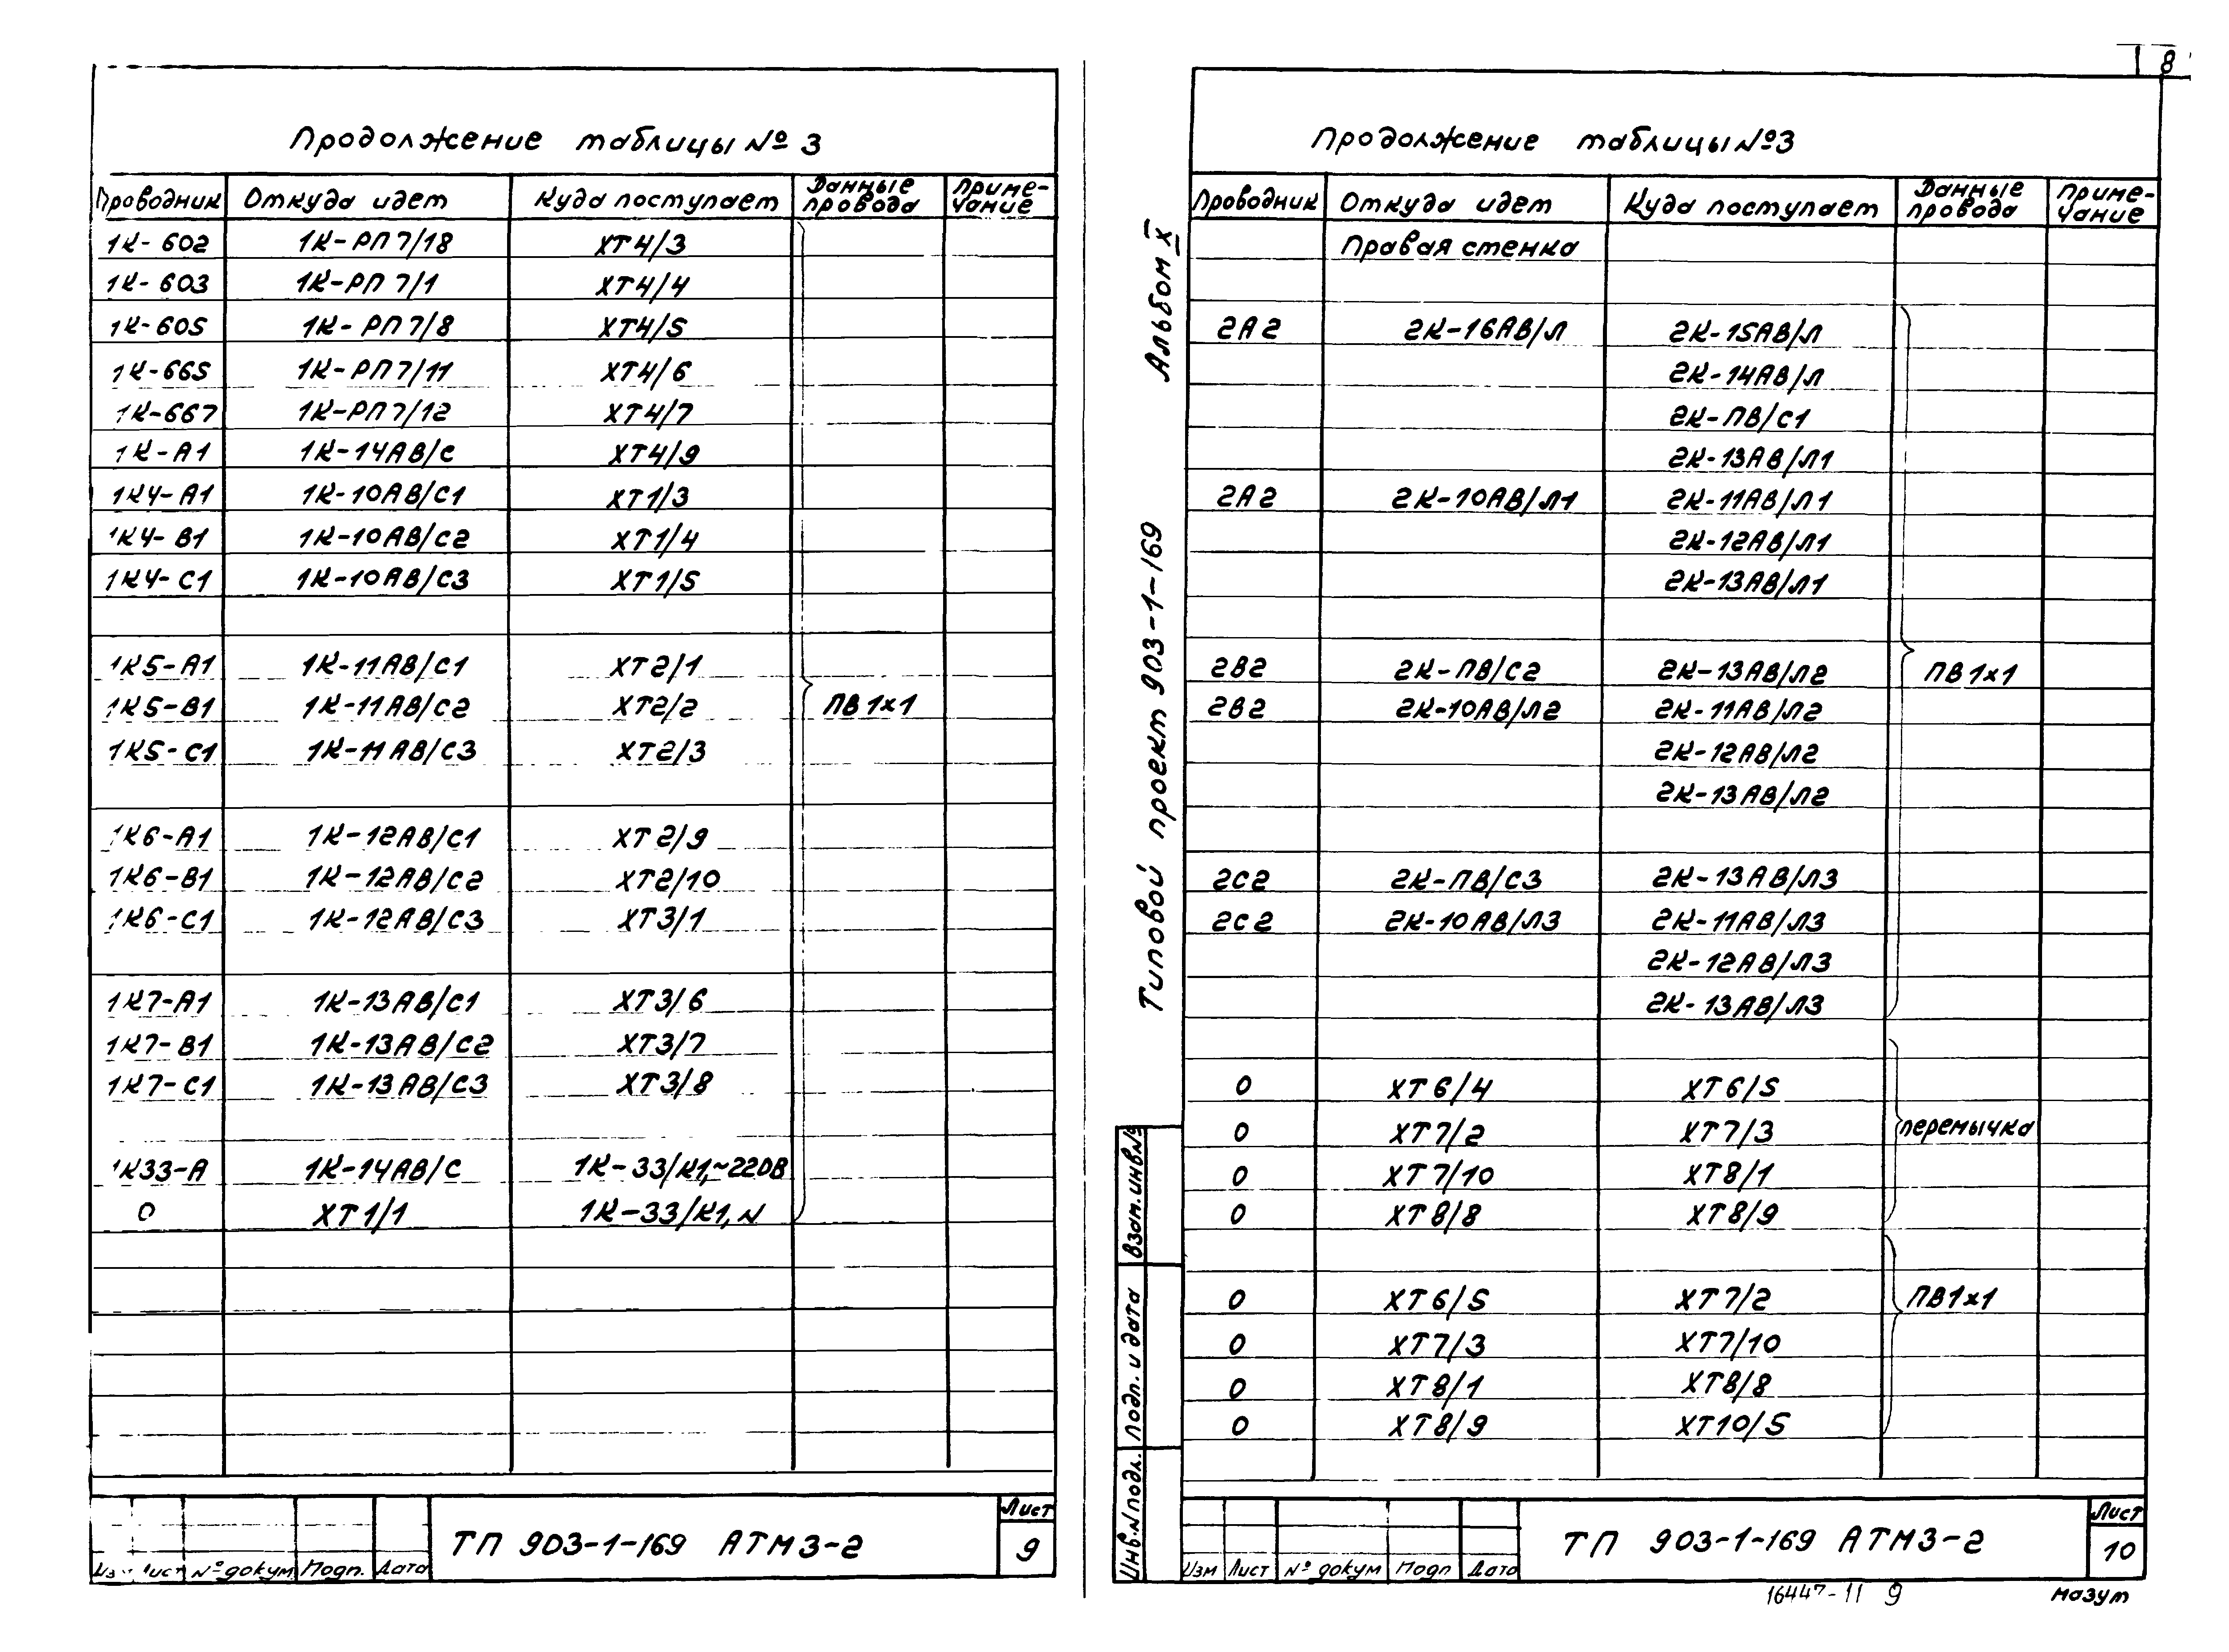 8
Продолжение таблицы № 3
Проводник Откуда идет Куда поступает Данные провода Приме-чание
1К-602 1К-РП7/18 ХТ4/3
1К-603 1К-РП7/1 ХТ4/4
1К-605 1К-РП7/8 ХТ4/5
1К-665 1К-РП7/11 ХТ4/6
1К-667 1К-РП7/12 ХТ4/7
1К-А1 1К-14АВ/С ХТ4/9
1К4-А1 1К-10АВ/С1 ХТ1/3
1К4-В1 1К-10АВ/С2 ХТ1/4
1К4-С1 1К-10АВ/С3 ХТ1/5
1К5-А1 1К-11АВ/С1 ХТ2/1
1К5-В1 1К-11АВ/С2 ХТ2/2 ПВ1х1
1К5-С1 1К-11АВ/С3 ХТ2/3
1К6-А1 1К-12АВ/С1 ХТ2/9
1К6-В1 1К-12АВ/С2 ХТ2/10
1К6-С1 1К-12АВ/С3 ХТ3/1
1К7-А1 1К-13АВ/С1 ХТ3/6
1К7-В1 1К-13АВ/С2 ХТ3/7
1К7-С1 1К-13АВ/С3 ХТ3/8
1К33-А 1К-14АВ/С 1К-33/К1,~220В
0 ХТ1/1 1К-33/К1, N
Изм Лист № докум Подп. Дата
ТП 903-1-169 АТМ3-2
Лист
9
Альбом X
Типовой проект 903-1-169
Взам.инв№
Подп. и дата
Инв.№подл.
Продолжение таблицы №3
Проводник Откуда идет Куда поступает Данные провода Приме-чание
Правая стенка
2А2 2К-16АВ/Л 2К-15АВ/Л
2К-14АВ/Л
2К-ПВ/С1
2К-13АВ/Л1
2А2 2К-10АВ/Л1 2К-11АВ/Л1
2К-12АВ/Л1
2К-13АВ/Л1
2В2 2К-ПВ/С2 2К-13АВ/Л2 ПВ1х1
2В2 2К-10АВ/Л2 2К-11АВ/Л2
2К-12АВ/Л2
2К-13АВ/Л2
2С2 2К-ПВ/С3 2К-13АВ/Л3
2С2 2К-10АВ/Л3 2К-11АВ/Л3
2К-12АВ/Л3
2К-13АВ/Л3
0 ХТ6/4 ХТ6/5
0 ХТ7/2 ХТ7/3 перемычка
0 ХТ7/10 ХТ8/1
0 ХТ8/8 ХТ8/9
0 ХТ6/5 ХТ7/2 ПВ1х1
0 ХТ7/3 ХТ7/10
0 ХТ8/1 ХТ8/8
0 ХТ8/9 ХТ10/5
Изм Лист № докум Подп Дата
ТП 903-1-169 АТМ3-2
Лист
10
16447-11 9 мазут